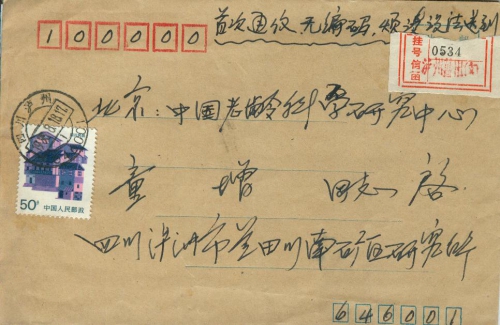 首次通仪无编码，烦请设法送到
100000
挂号信函
0534
四川泸州
北京：中国老龄科学研究中心
童增 同志 启
50分 中国人民邮政
四川泸州市兰田川南矿区研究所
646001